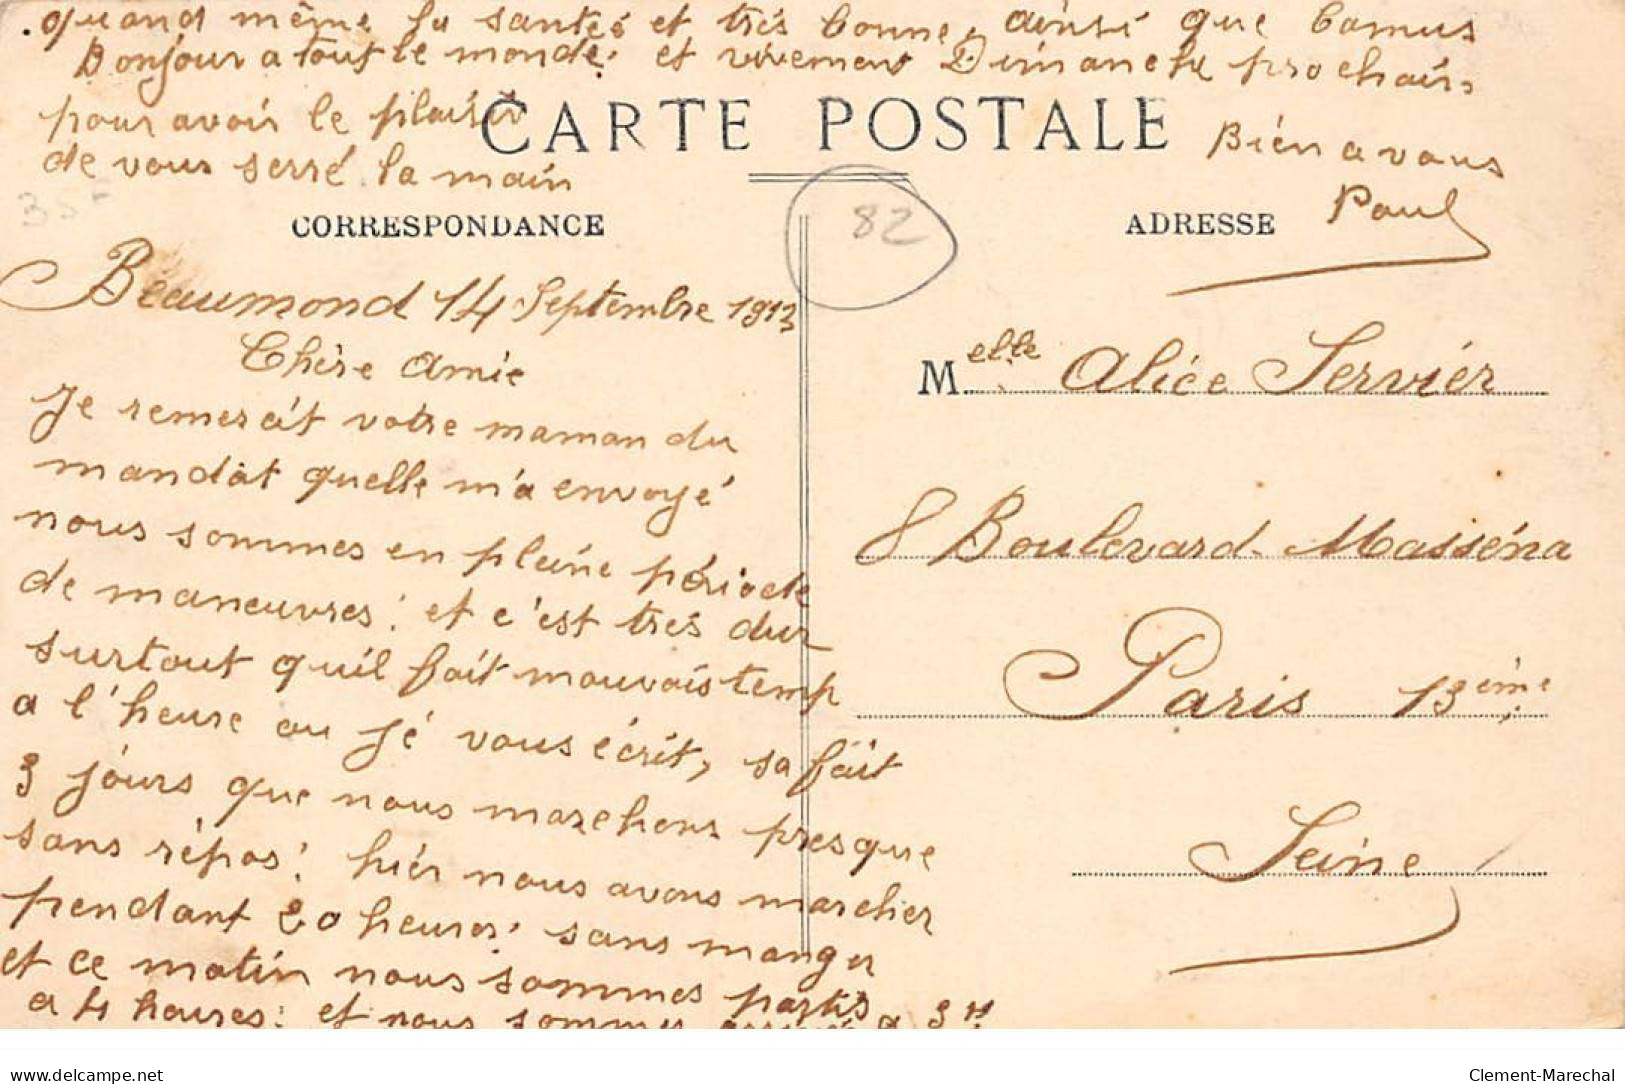 quand même la santée et très bonne, ainsi que Camus
Bonjour a tout le monde. et vivement Dimanche prochain,
pour avoir le plaisir
de vous serré la main
Bien a vous
Paul
CARTE POSTALE
35-
82
CORRESPONDANCE
ADRESSE
Beaumond 14 Septembre 1913
Chère Amie
Je remercit votre maman du
mandat quelle m'a envoyé
nous sommes en pleine période
de maneuvres: et c'est très dur
surtout quil fait mauvais temp
a l'heure ou jé vous écrit, sa fait
3 jours que nous marchons presque
sans répos: hièr nous avons marcher
pendant 20 heures: sans manger
et ce matin nous sommes partis
a 4 heures: et nous sommes arrivé a 3H
Melle Alice Servièr
8 Boulevard Masséna
Paris 13ème
Seine
delcampe.net
Clement-Marechal